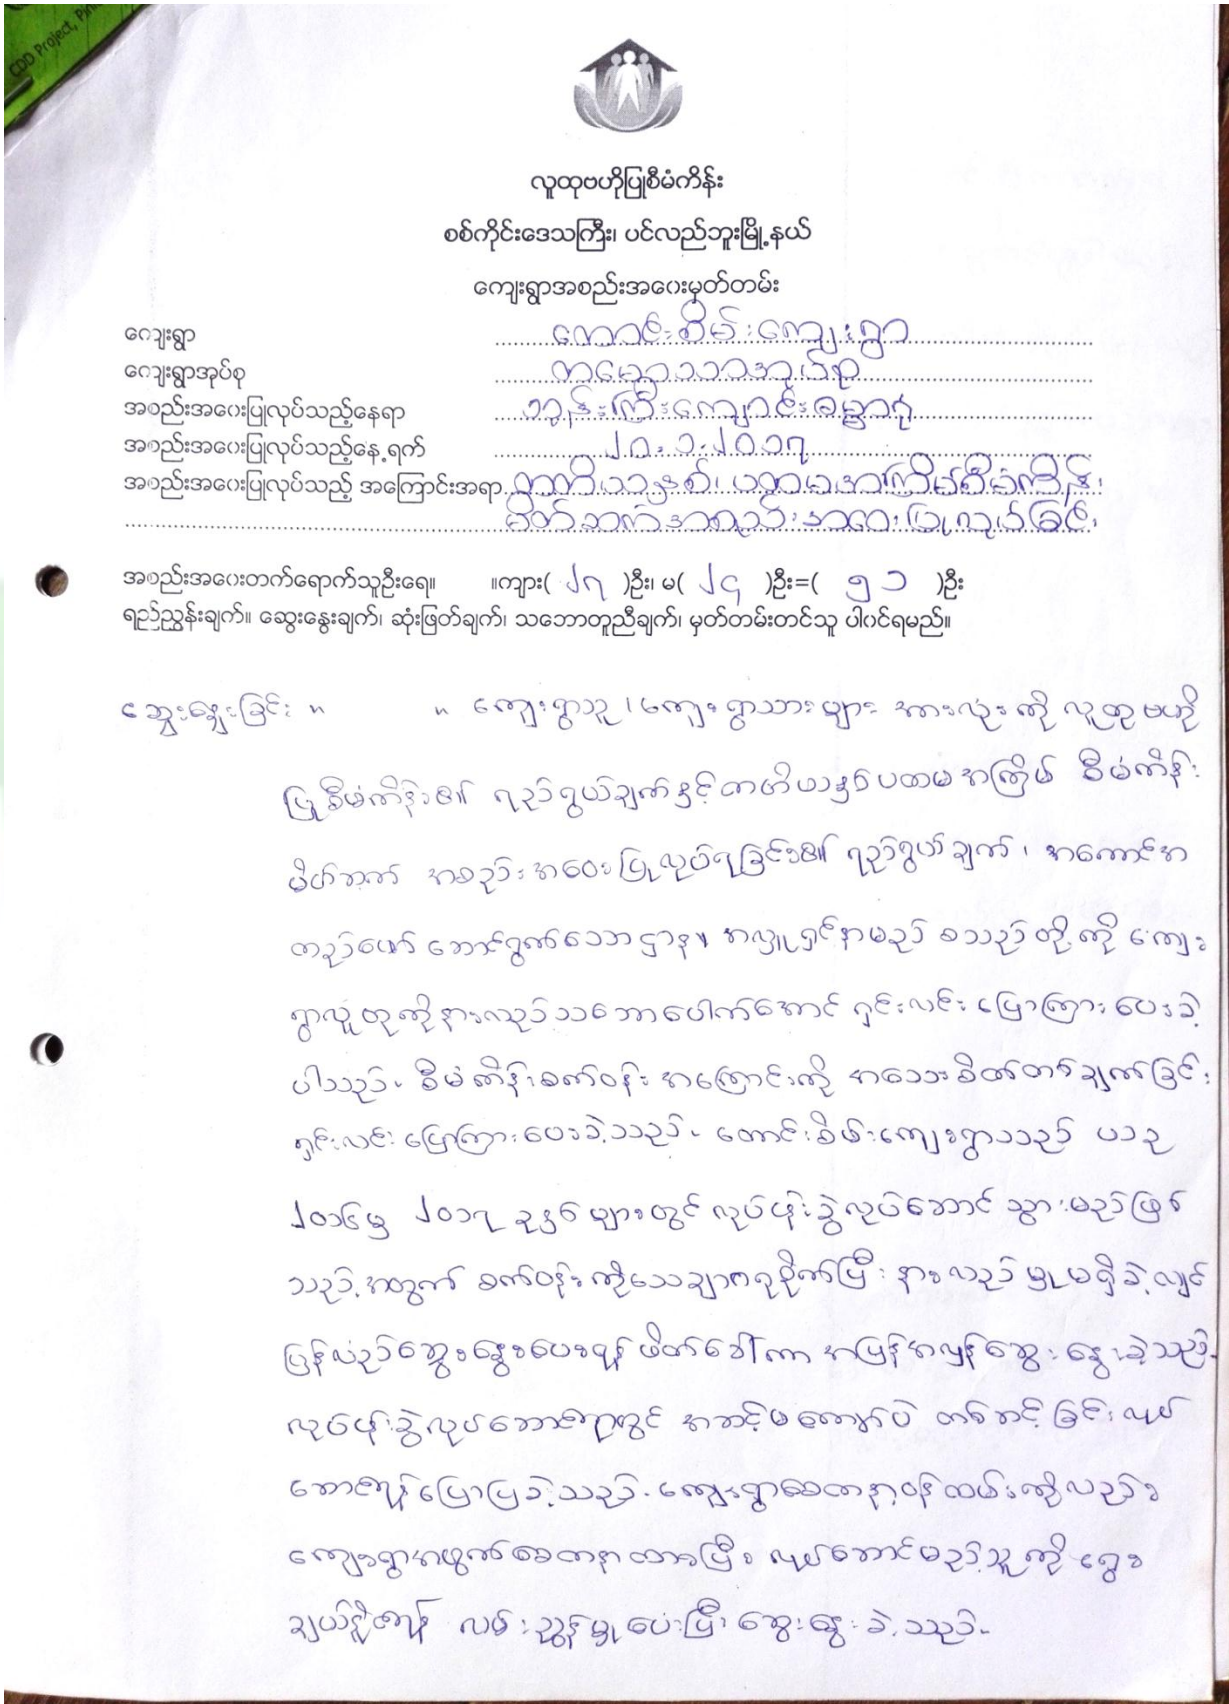 CDD Project, Pin
လူထုဗဟိုပြုစီမံကိန်း
စစ်ကိုင်းဒေသကြီး၊ ပင်လည်ဘူးမြို့နယ်
ကျေးရွာအစည်းအဝေးမှတ်တမ်း
ကျေးရွာ တောင်းစိမ်းကျေးရွာ
ကျေးရွာအုပ်စု
အစည်းအဝေးပြုလုပ်သည့်နေရာ ဘုန်းကြီးကျောင်းဓမ္မာရုံ
အစည်းအဝေးပြုလုပ်သည့်နေ့ရက် ၂၀.၁.၂၀၁၇
အစည်းအဝေးပြုလုပ်သည့် အကြောင်းအရာ တတိယနှစ်၊ ပထမအကြိမ်စီမံကိန်း၊
မိတ်ဆက်အစည်းအဝေးပြုလုပ်ခြင်း၊
အစည်းအဝေးတက်ရောက်သူဦးရေ။ ။ကျား( ၂၇ )ဦး၊ မ( ၂၄ )ဦး=( ၅၁ )ဦး
ရည်ညွှန်းချက်။ ဆွေးနွေးချက်၊ ဆုံးဖြတ်ချက်၊ သဘောတူညီချက်၊ မှတ်တမ်းတင်သူ ပါဝင်ရမည်။
ဆွေးနွေးခြင်း ။ ။ ကျေးရွာသူ၊ ကျေးရွာသားများ အားလုံးကို လူထုဗဟို
ပြုစီမံကိန်း၏ ရည်ရွယ်ချက်နှင့်တတိယနှစ်ပထမအကြိမ် စီမံကိန်း
မိတ်ဆက် အစည်းအဝေးပြုလုပ်ရခြင်း၏ ရည်ရွယ်ချက်၊ အကောင်အ
ထည်ဖော် ဆောင်ရွက်သောဌာန၊ အလှူရှင်အမည် စသည်တို့ကို ကျေး
ရွာလူထုကိုနားလည်သဘောပေါက်အောင် ရှင်းလင်းပြောကြားပေးခဲ့
ပါသည်။ စီမံကိန်းစက်ဝန်းအကြောင်းကို အသေးစိတ်တစ်ချက်ခြင်း
ရှင်းလင်းပြောကြားပေးခဲ့သည်။ တောင်းစိမ်းကျေးရွာသည်
၂၀၁၆မှ ၂၀၁၇ ခုနှစ်များတွင် လုပ်ငန်းခွဲလုပ်ဆောင်သွားမည်ဖြစ်
သည့်အတွက် စက်ဝန်းကိုသေချာဂရုစိုက်ပြီး နားလည်မှုမရှိခဲ့လျှင်
ပြန်လည်ဆွေးနွေးပေးရန်ဖိတ်ခေါ်ကာ အပြန်အလှန်ဆွေးနွေးခဲ့သည်။
လုပ်ငန်းခွဲလုပ်ဆောင်ရာတွင် အဆင့်မကျော်ပဲ တစ်ဆင့်ခြင်းလုပ်
ဆောင်ရန်ပြောပြခဲ့သည်။ ကျေးရွာစေတနာ့ဝန်ထမ်းကိုလည်း
ကျေးရွာအတွက်စေတနာထားပြီး လုပ်ဆောင်မည့်သူကို ရွေး
ချယ်နိုင်ရန် လမ်းညွှန်မှုပေးပြီး ဆွေးနွေးခဲ့သည်။